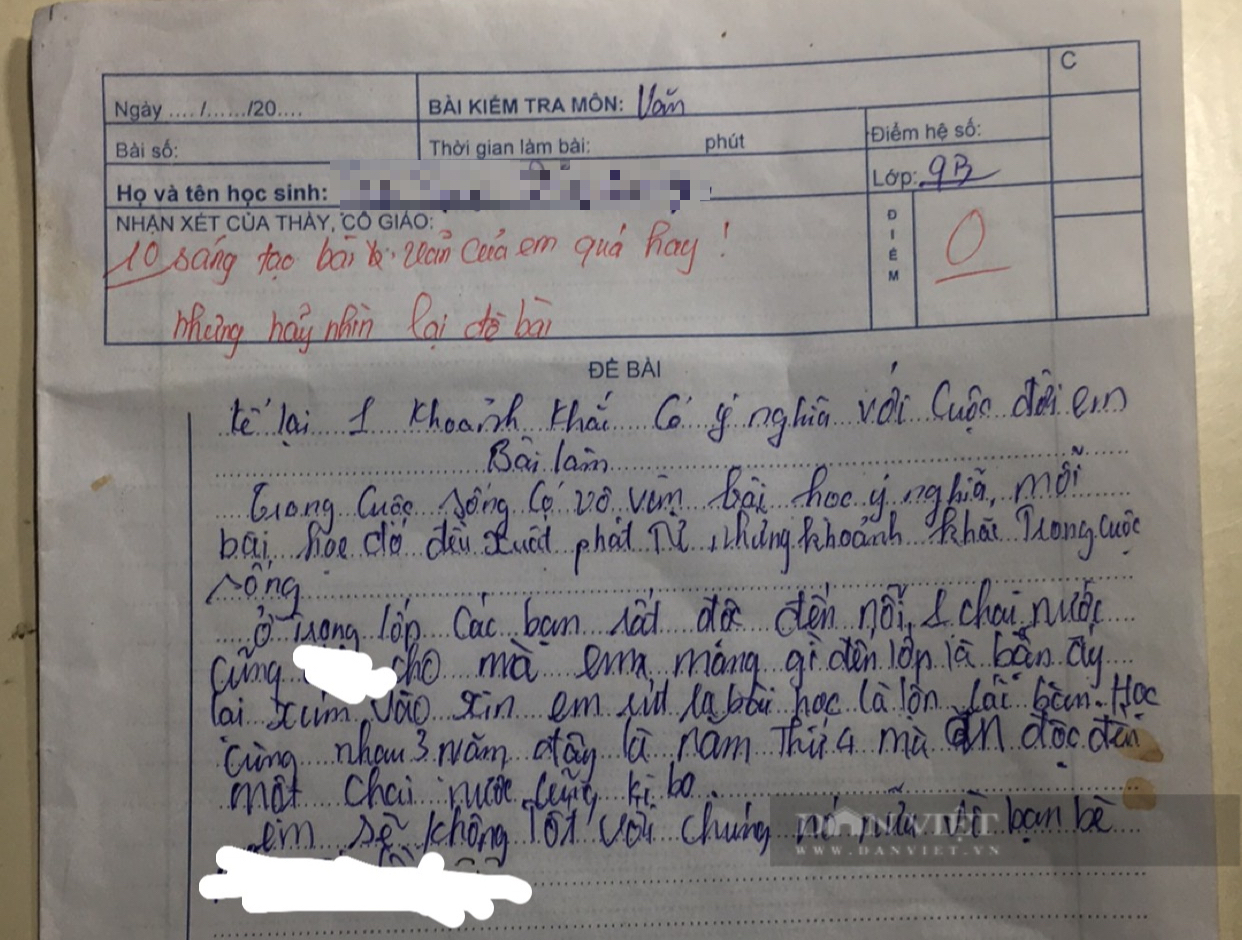 C
Ngày ..../......./20....
BÀI KIỂM TRA MÔN: Văn
Bài số:
Thời gian làm bài: phút
Điểm hệ số:
Họ và tên học sinh:
Lớp: 9B
NHẬN XÉT CỦA THẦY, CÔ GIÁO:
ĐIỂM
0
10 sáng tạo bài văn của em quá hay !
nhưng hãy nhìn lại đề bài
ĐỀ BÀI
kể lại 1 khoảnh khắc có ý nghĩa với cuộc đời em
Bài làm
Trong cuộc sống có vô vàn bài học ý nghĩa, mỗi
bài học đó đều xuất phát từ những khoảnh khắc trong cuộc
sống
Ở trong lớp các bạn rất độc đến nỗi 1 chai nước
cũng cho mà em mang gì đến lớp là bạn ấy
lại xúm vào xin em rút ra bài học là lòn lắt bàn. Học
cùng nhau 3 năm đây là năm thứ 4 mà độc đến
một chai nước cũng ki bo.
em sẽ không tốt với chúng nó nữa vì bạn bè
DÂN VIỆT
WWW.DANVIET.VN